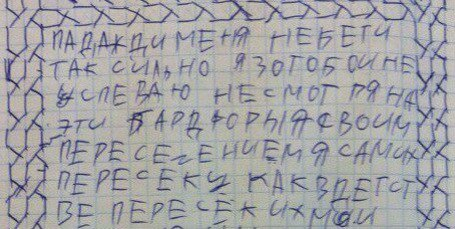 ПАДАЖДИ МЕНЯ НЕБЕГИ
ТАК СИЛЬНО Я ЗОТОБОЙ НЕ
УСПЕВАЮ НЕСМОТРЯ НА
ЭТИ БАРДЮРЫ Я СВОИМ
ПЕРЕСЕЧЕНИЕМ Я САМИХ
ПЕРЕСЕКУ КАК В ДЕТСТ
ВЕ ПЕРЕСЕК ИХ МОЙ